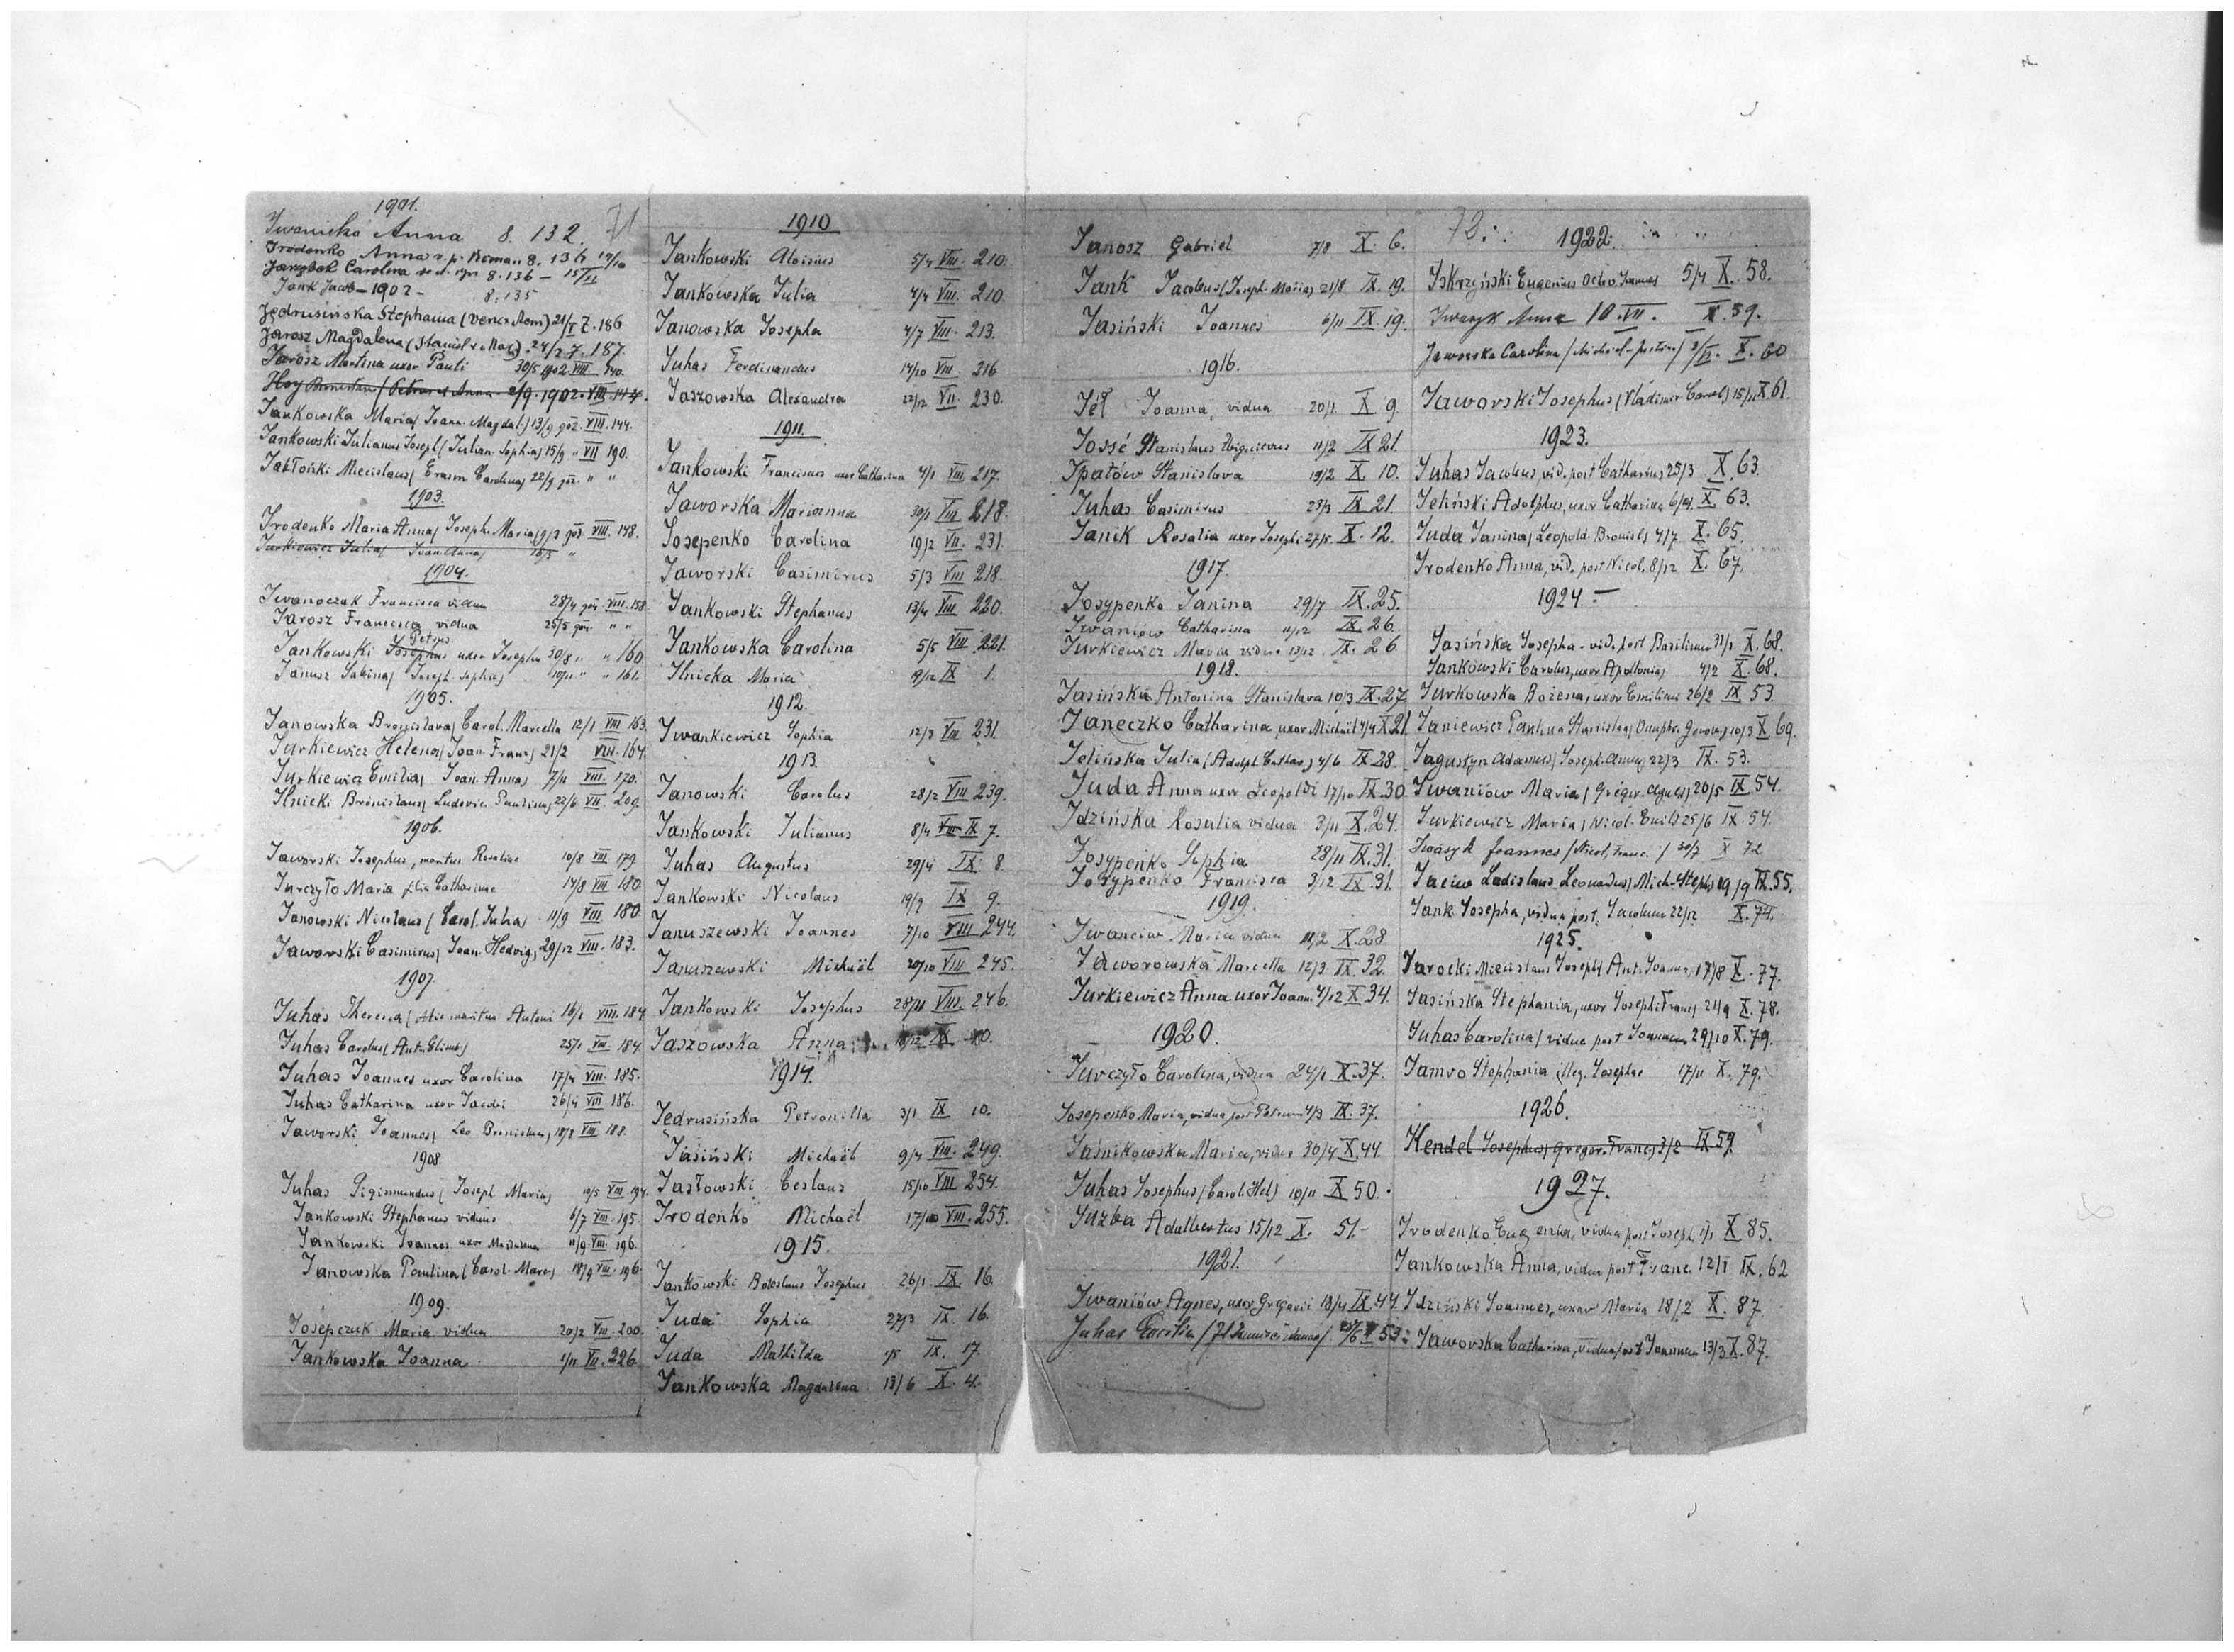 1901.
71
Iwanicka Anna 8. 132.
Irodenko Anna v. p. Roman 8. 134 19/10
Carolina 8.136 - 15/XI
Jank Jacob - 1902 - 8.135
Jędrusińska Stephania (Vence. Rom) 21/I 7.186
Jarosz Magdalena (Stanisl. Mar.) 24/2 7. 187.
Jarosz Martina uxor Pauli 30/5 1902 VIII. 140.
2/9. 1902. VIII. 144.
Jankowska Maria (Joann. Magdal.) 13/9 902. VIII. 144.
Jankowski Julianus Joseph (Julian. Sophia) 15/9 " VII 190.
Jabłoński Miecislaus (Erasm Carolina) 22/9 902. " "
1903.
Irodenko Maria Anna (Joseph. Maria) 9/3 903 VIII. 148.
Jurkiewicz Julia (Joan. Anna) 16/5 "
1904.
Iwanoczak Francisca vidua 28/4 904 VIII. 158
Jarosz Francisca vidua 25/5 904 " "
Petrus
Jankowski Josephus uxor Josepha 30/8 " " 160
Janusz Sabina (Joseph. Sophia) 10/11 " " 161.
1905.
Janowska Bronislava (Carol. Marcella 12/1 VIII 163.
Jurkiewicz Helena (Joan. Franc) 21/2 VIII. 164.
Jurkiewicz Emilia (Joan. Anna) 7/11 VIII. 170.
Ilnicki Bronislaus (Ludovic. Paulina) 22/6 VII 209.
1906.
Jaworski Josephus, maritus Rosaliae 10/8 VIII 179.
Jurczyło Maria filia Catharinae 14/8 VIII 180.
Janowski Nicolaus (Carol. Julia) 11/9 VIII 180.
Jaworski Casimirus (Joan. Hedvig) 29/12 VIII. 183.
1907.
Juhas Theresa Antoni 16/1 VIII. 184
Juhas Carolus (Ant. ) 25/1 VIII 184
Juhas Joannes uxor Carolina 17/4 VIII. 185.
Juhas Catharina uxor Jacobi 26/4 VIII 186.
Jaworski Joannes (Leo Bronislava) 18/8 VIII 188.
1908
Juhas Sigismundus (Joseph Maria) 10/5 VIII 194.
Jankowski Stephanus viduus 6/7 VIII. 195.
Jankowski Joannes uxor Magdalena 11/9 VIII 196.
Janowska Paulina (Carol. Marc) 18/9 VIII. 196.
1909.
Josepczuk Maria vidua 20/2 VIII. 200.
Jankowska Joanna 1/11 VII. 226
1910
Jankowski Aloisius 5/4 VIII. 210.
Jankowska Julia 4/4 VIII. 210.
Janowska Josepha 4/7 VIII. 213.
Juhas Ferdinandus 14/10 VIII. 216
Jaszowska Alexandra 22/12 VII. 230.
1911.
Jankowski Franciscus uxor Catharina 4/1 VIII. 217.
Jaworska Marianna 30/1 VIII 218.
Josepenko Carolina 19/2 VII. 231.
Jaworski Casimirus 5/3 VIII 218.
Jankowski Stephanus 13/4 VIII 220.
Jankowska Carolina 5/5 VIII 221.
Ilnicka Maria 9/12 IX 1.
1912.
Iwankiewicz Sophia 12/3 VII 231.
1913.
Janowski Carolus 28/2 VIII 239.
Jankowski Julianus 8/4 VIII IX 7.
Juhas Augustus 29/4 IX 8.
Jankowski Nicolaus 19/9 IX 9.
Januszewski Joannes 7/10 VIII 244.
Januszewski Michaël 20/10 VIII 245.
Jankowski Josephus 28/11 VIII. 246.
Jaszowska Anna 18/12 IX 10.
1914.
Jedrusińska Petronilla 3/1 IX 10.
Jasiński Michaël 9/4 VIII. 249.
Jasłowski Ceslaus 15/10 VIII 254.
Irodenko Michaël 17/10 VIII. 255.
1915.
Jankowski Boleslaus Josephus 26/1 IX 16.
Juda Sophia 27/3 IX. 16.
Juda Mathilda 1/5 IX. 17.
Jankowska Magdalena 13/6 X. 4.
Janosz Gabriel 7/8 X. 6.
Jank Jacobus (Joseph. Maria) 21/8 IX. 19.
Jasiński Joannes 6/11 IX. 19.
1916.
Jeł Joanna, vidua 20/1. X 9.
Jossé Stanislaus Zbignievus 11/2 IX 21.
Ipatów Stanislava 19/2 X. 10.
Juhas Casimirus 23/3 IX 21.
Janik Rosalia uxor Josephi 27/5. X. 12.
1917.
Josypenko Janina 29/7 IX. 25.
Iwaniów Catharina 11/12 IX. 26.
Jurkiewicz Maria vidua 13/12 IX. 26
1918.
Jasińska Antonina Stanislava 10/3 IX. 27
Janeczko Catharina, uxor Michaël 4/4 X 21.
Jelińska Julia (Adolph. Cathar.) 4/6 IX 28
Juda Anna uxor Leopoldi 17/10 IX 30
Idzińska Rosalia vidua 3/11 X. 24.
Josypenko Sophia 28/11 IX. 31.
Josypenko Francisca 3/12 IX. 31.
1919.
Iwanciw Maria vidua 11/2 X. 28
Jaworowska Marcella 12/3 IX. 32.
Jurkiewicz Anna uxor Joann. 4/12 X. 34.
1920.
Jurczyło Carolina, vidua 24/1 X. 37.
Josepenko Maria, vidua post Petrum 4/3 IX. 37.
Jaśnikowska Maria, vidua 30/4 X. 44.
Juhas Josephus (Carol. Hel.) 10/11 X 50.
Juzba Adalbertus 15/12 X. 51.-
1921.
Iwaniów Agnes, uxor Gregorii 18/4 IX 44.
Juhas 53.
72.
1922.
Iskrzyński Eugenius Octav. Joannes 5/4 X. 58.
Iwasyk Anna 10.VII. X. 59.
Jaworska Carolina X. 60
Jaworski Josephus (Vladimir Carol) 15/11 X 61.
1923.
Juhas Jacobus, vid. post Catharina 25/3 X. 63.
Jeliński Adolphus, uxor Catharina 6/4 X. 63.
Juda Janina (Leopold. Bronisl) 4/7 X. 65.
Irodenko Anna, vid. post Nicol. 8/12 X. 67.
1924.-
Jasińska Josepha - vid. post Basilium 31/1 X. 68.
Jankowski Carolus, uxor Apollonia 4/2 X. 68.
Jurkowska Bożena, uxor Emiliani 26/2 IX 53.
Janiewicz Paulina Stanislava 10/3 X 69.
Jagustyn Adamus (Joseph. Anna) 22/3 IX. 53.
Iwaniów Maria (Gregor. Agnes) 20/5 IX 54.
Jurkiewicz Maria (Nicol. Emil) 25/6 IX 54.
Iwasyk Joannes (Nicol, Franc.) 20/7 X 72
Jaciw Ladislaus Leonardus (Mich. Steph) 19/9 IX 55.
Jank Josepha, vidua post. Jacobum 22/12 X. 74.
1925.
Jarocki Miecislaus Joseph (Ant. Joanna) 17/8 X. 77.
Jasińska Stephania, uxor Josephi Franc 21/9 X. 78.
Juhas Carolina (vidua post Joannem 29/10 X. 79.
Jamro Stephania illeg. Josephae 17/11 X. 79.
1926.
Hendel Josephus (Gregor. Franc) 3/2 IX 59
1927.
Irodenko Eugenia, vidua post Joseph. 1/1 X 85.
Jankowska Anna, vidua post Franc. 12/1 IX. 62
Idziński Joannes, uxor Maria 18/2 X. 87
Jaworska Catharina, vidua post Joannem 13/3 X. 87.